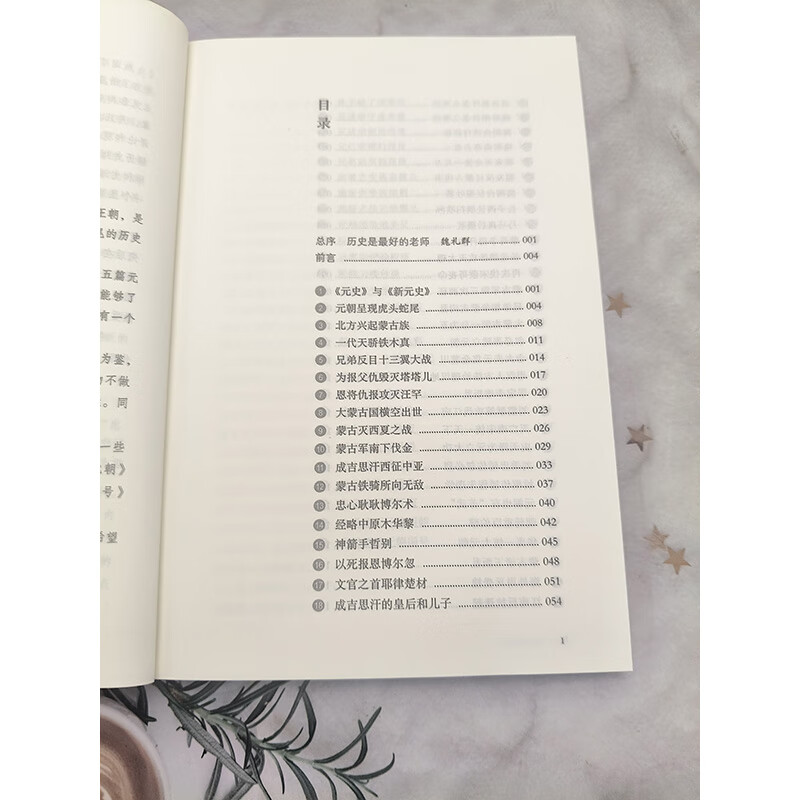 王朝、是
的历史
五篇元
能够了
有一个
为鉴，
不做
。同
一些
朝》
号》
希望
目录
总序 历史是最好的老师 魏礼群 ........ 001
前言 ........ 004
1 《元史》与《新元史》 ........ 001
2 元朝呈现虎头蛇尾 ........ 004
3 北方兴起蒙古族 ........ 008
4 一代天骄铁木真 ........ 011
5 兄弟反目十三翼大战 ........ 014
6 为报父仇毁灭塔塔儿 ........ 017
7 恩将仇报攻灭汪罕 ........ 020
8 大蒙古国横空出世 ........ 023
9 蒙古灭西夏之战 ........ 026
10 蒙古军南下伐金 ........ 029
11 成吉思汗西征中亚 ........ 033
12 蒙古铁骑所向无敌 ........ 037
13 忠心耿耿博尔术 ........ 040
14 经略中原木华黎 ........ 042
15 神箭手哲别 ........ 045
16 以死报恩博尔忽 ........ 048
17 文官之首耶律楚材 ........ 051
18 成吉思汗的皇后和儿子 ........ 054
1